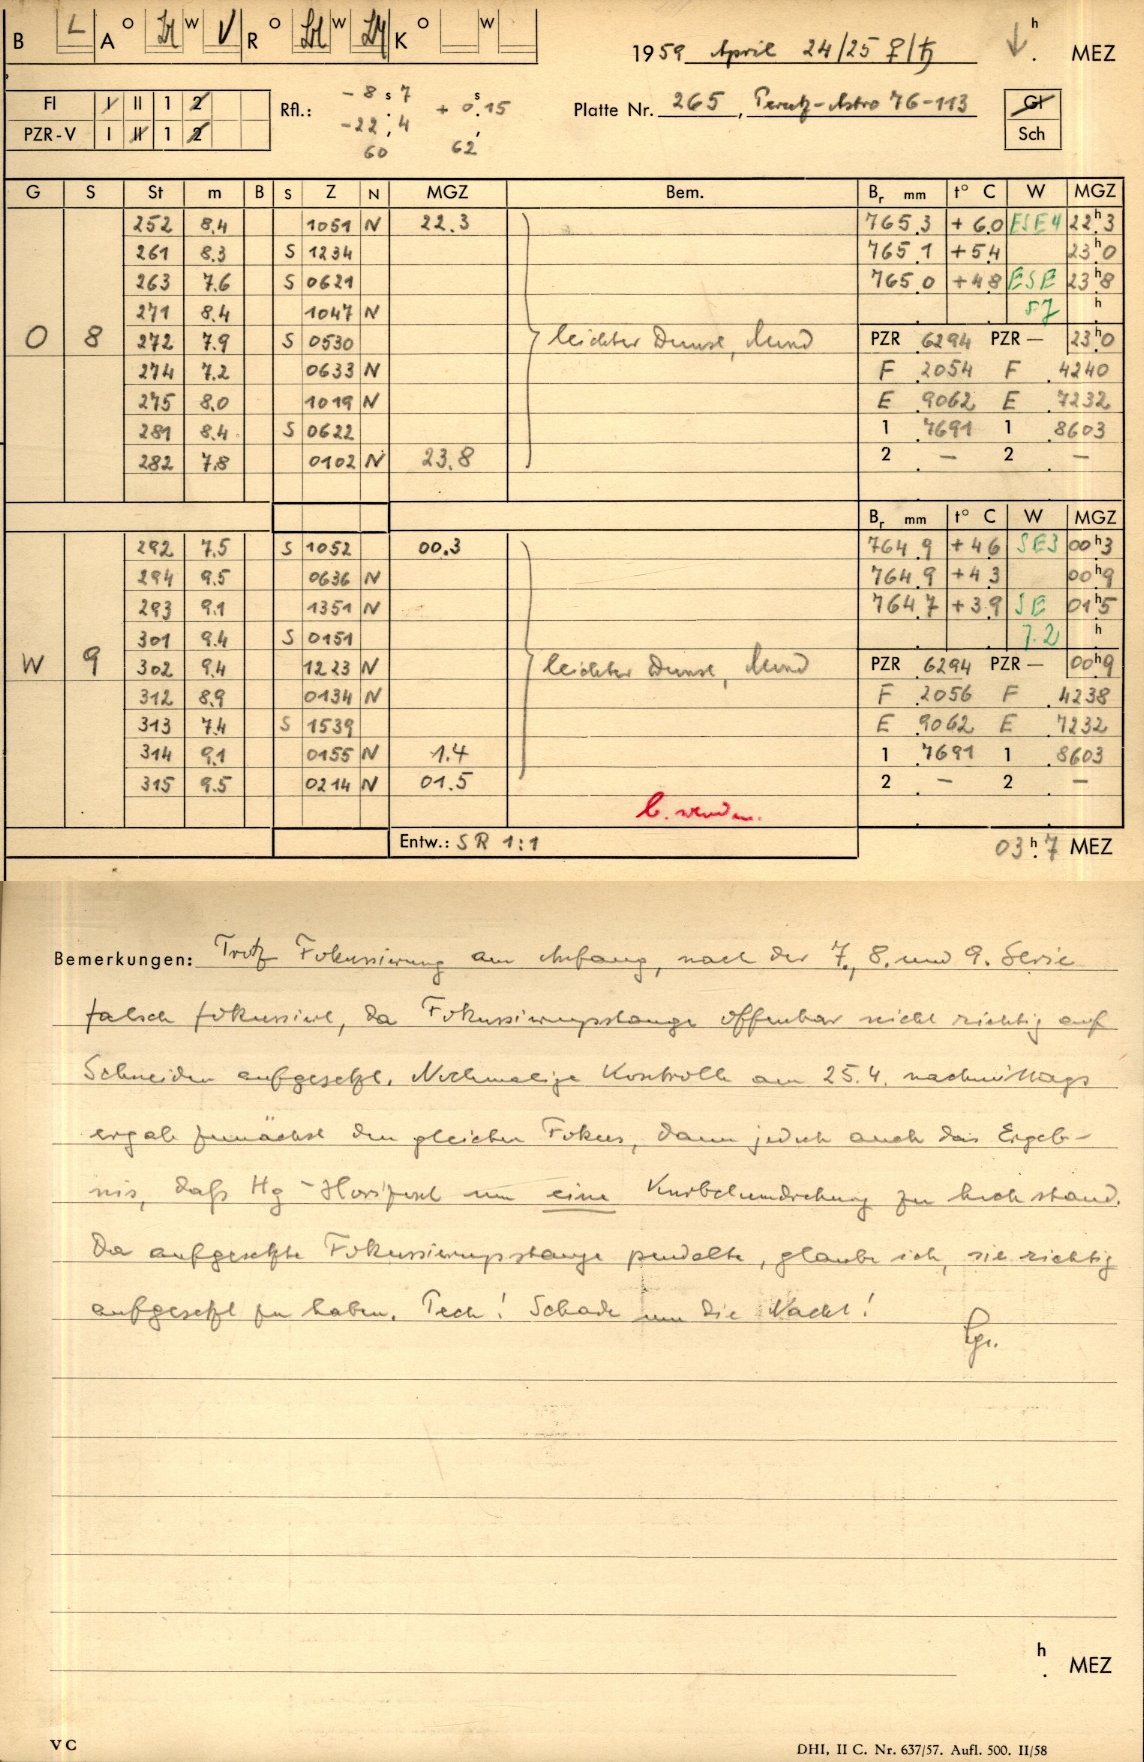 B L A O W V R O W K O W
1959 April 24/25 ♀/♄ h . MEZ
Fl I II 1 2
PZR-V I II 1 2
Rfl.: -8 s 7 + 0 s 15
-22 , 4
60 62
Platte Nr. 265, Perutz-Astro 76-113
Gl
Sch
G S St m B S Z N MGZ Bem. Br mm t° C W MGZ
252 8.4 1051 N 22.3 765.3 +6.0 ESE4 22h3
261 8.3 S 1234 765.1 +5.4 23h0
263 7.6 S 0621 765.0 +4.8 ESE 23h8
271 8.4 1047 N 5.7 h
O 8 272 7.9 S 0530 leichter Dunst, Mond PZR 6294 PZR — 23h0
274 7.2 0633 N F .2054 F .4240
275 8.0 1019 N E .9062 E .7232
281 8.4 S 0622 1 .7691 1 .8603
282 7.8 0102 N 23.8 2 — 2 —
Br mm t° C W MGZ
292 7.5 S 1052 00.3 764.9 +4.6 SE3 00h3
294 9.5 0636 N 764.9 +4.3 00h9
293 9.1 1351 N 764.7 +3.9 SE 01h5
301 9.4 S 0151 7.2 h
W 9 302 9.4 1223 N leichter Dunst, Mond PZR 6294 PZR — 00h9
312 8.9 0134 N F .2056 F .4238
313 7.4 S 1539 E .9062 E .7232
314 9.1 0155 N 1.4 1 .7691 1 .8603
315 9.5 0214 N 01.5 2 — 2 —
b. wenden.
Entw.: SR 1:1 03h.7 MEZ
Bemerkungen: Trotz Fokussierung am Anfang, nach der 7., 8. und 9. Serie
falsch fokussiert, da Fokussierungsstange offenbar nicht richtig auf
Schneiden aufgesetzt. Nochmalige Kontrolle am 25.4. nachmittags
ergab zunächst den gleichen Fokus, dann jedoch auch das Ergeb-
nis, daß Hg-Horizont um eine Kurbelumdrehung zu hoch stand.
Da aufgesetzte Fokussierungsstange pendelte, glaube ich, sie richtig
aufgesetzt zu haben. Pech! Schade um die Nacht!
h . MEZ
VC
DHI, II C. Nr. 637/57. Aufl. 500. II/58